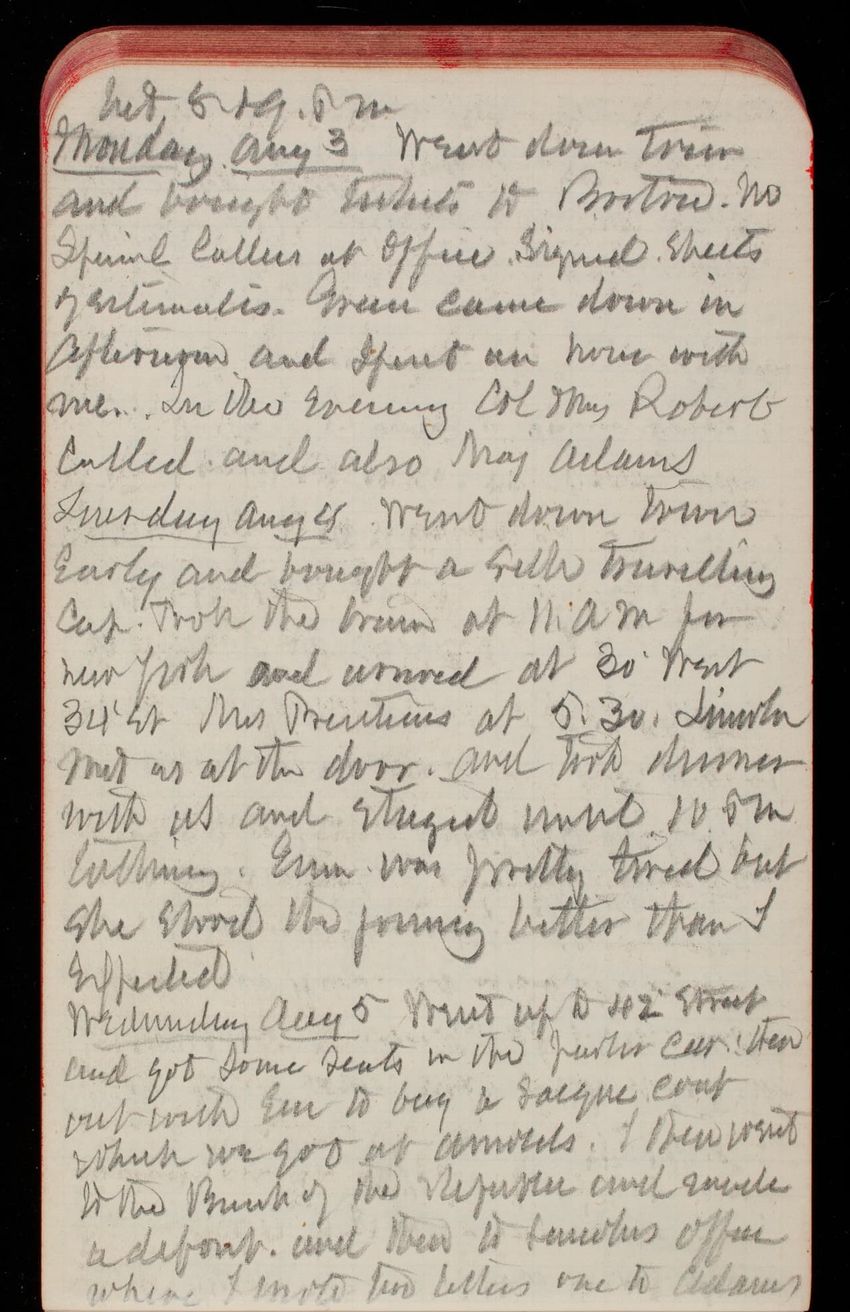 bed 8 to 9. P m
Monday Aug 3 Went down town
and bought tickets to Boston. No
Special Callers at Office. Signed Sheets
of estimates. Green came down in
Afternoon and Spent an hour with
me. In the Evening Col & Mrs Robert
Called and also Maj Adams
Tuesday Aug 4 Went down town
Early and bought a Silk travelling
Cap. Took the train at 11. A M for
New York and arrived at 30 West
34 St Mrs Prentiss at 5. 30. Lincoln
met us at the door. and took dinner
with us and stayed until 10 P m
talking. Em was pretty tired but
She Stood the journey better than I
Expected
Wednesday Aug 5 Went up to 42 Street
and got Some seats in the parlor car. then
out with Em to buy a Sacque coat
which we got at Arnolds. I then went
to the Bank of the Republic and made
a deposit. and then to Lincolns office
where I wrote two letters one to Adams